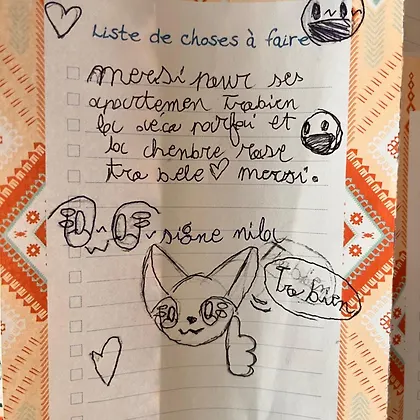 Liste de choses à faire
mersi pour ses
apartemen trabien
la déca parfai et
la chenbre rose
tra bele mersi.
signe nila
Tra bien